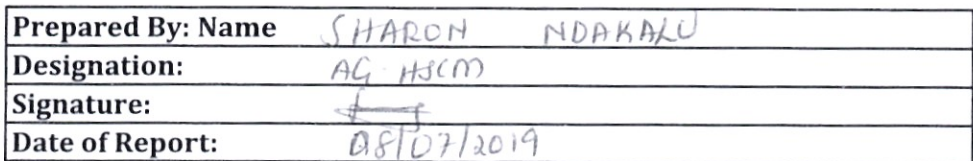 Prepared By: Name SHARON NDAKALU
Designation: AG HSCM
Signature:
Date of Report: 08/07/2019